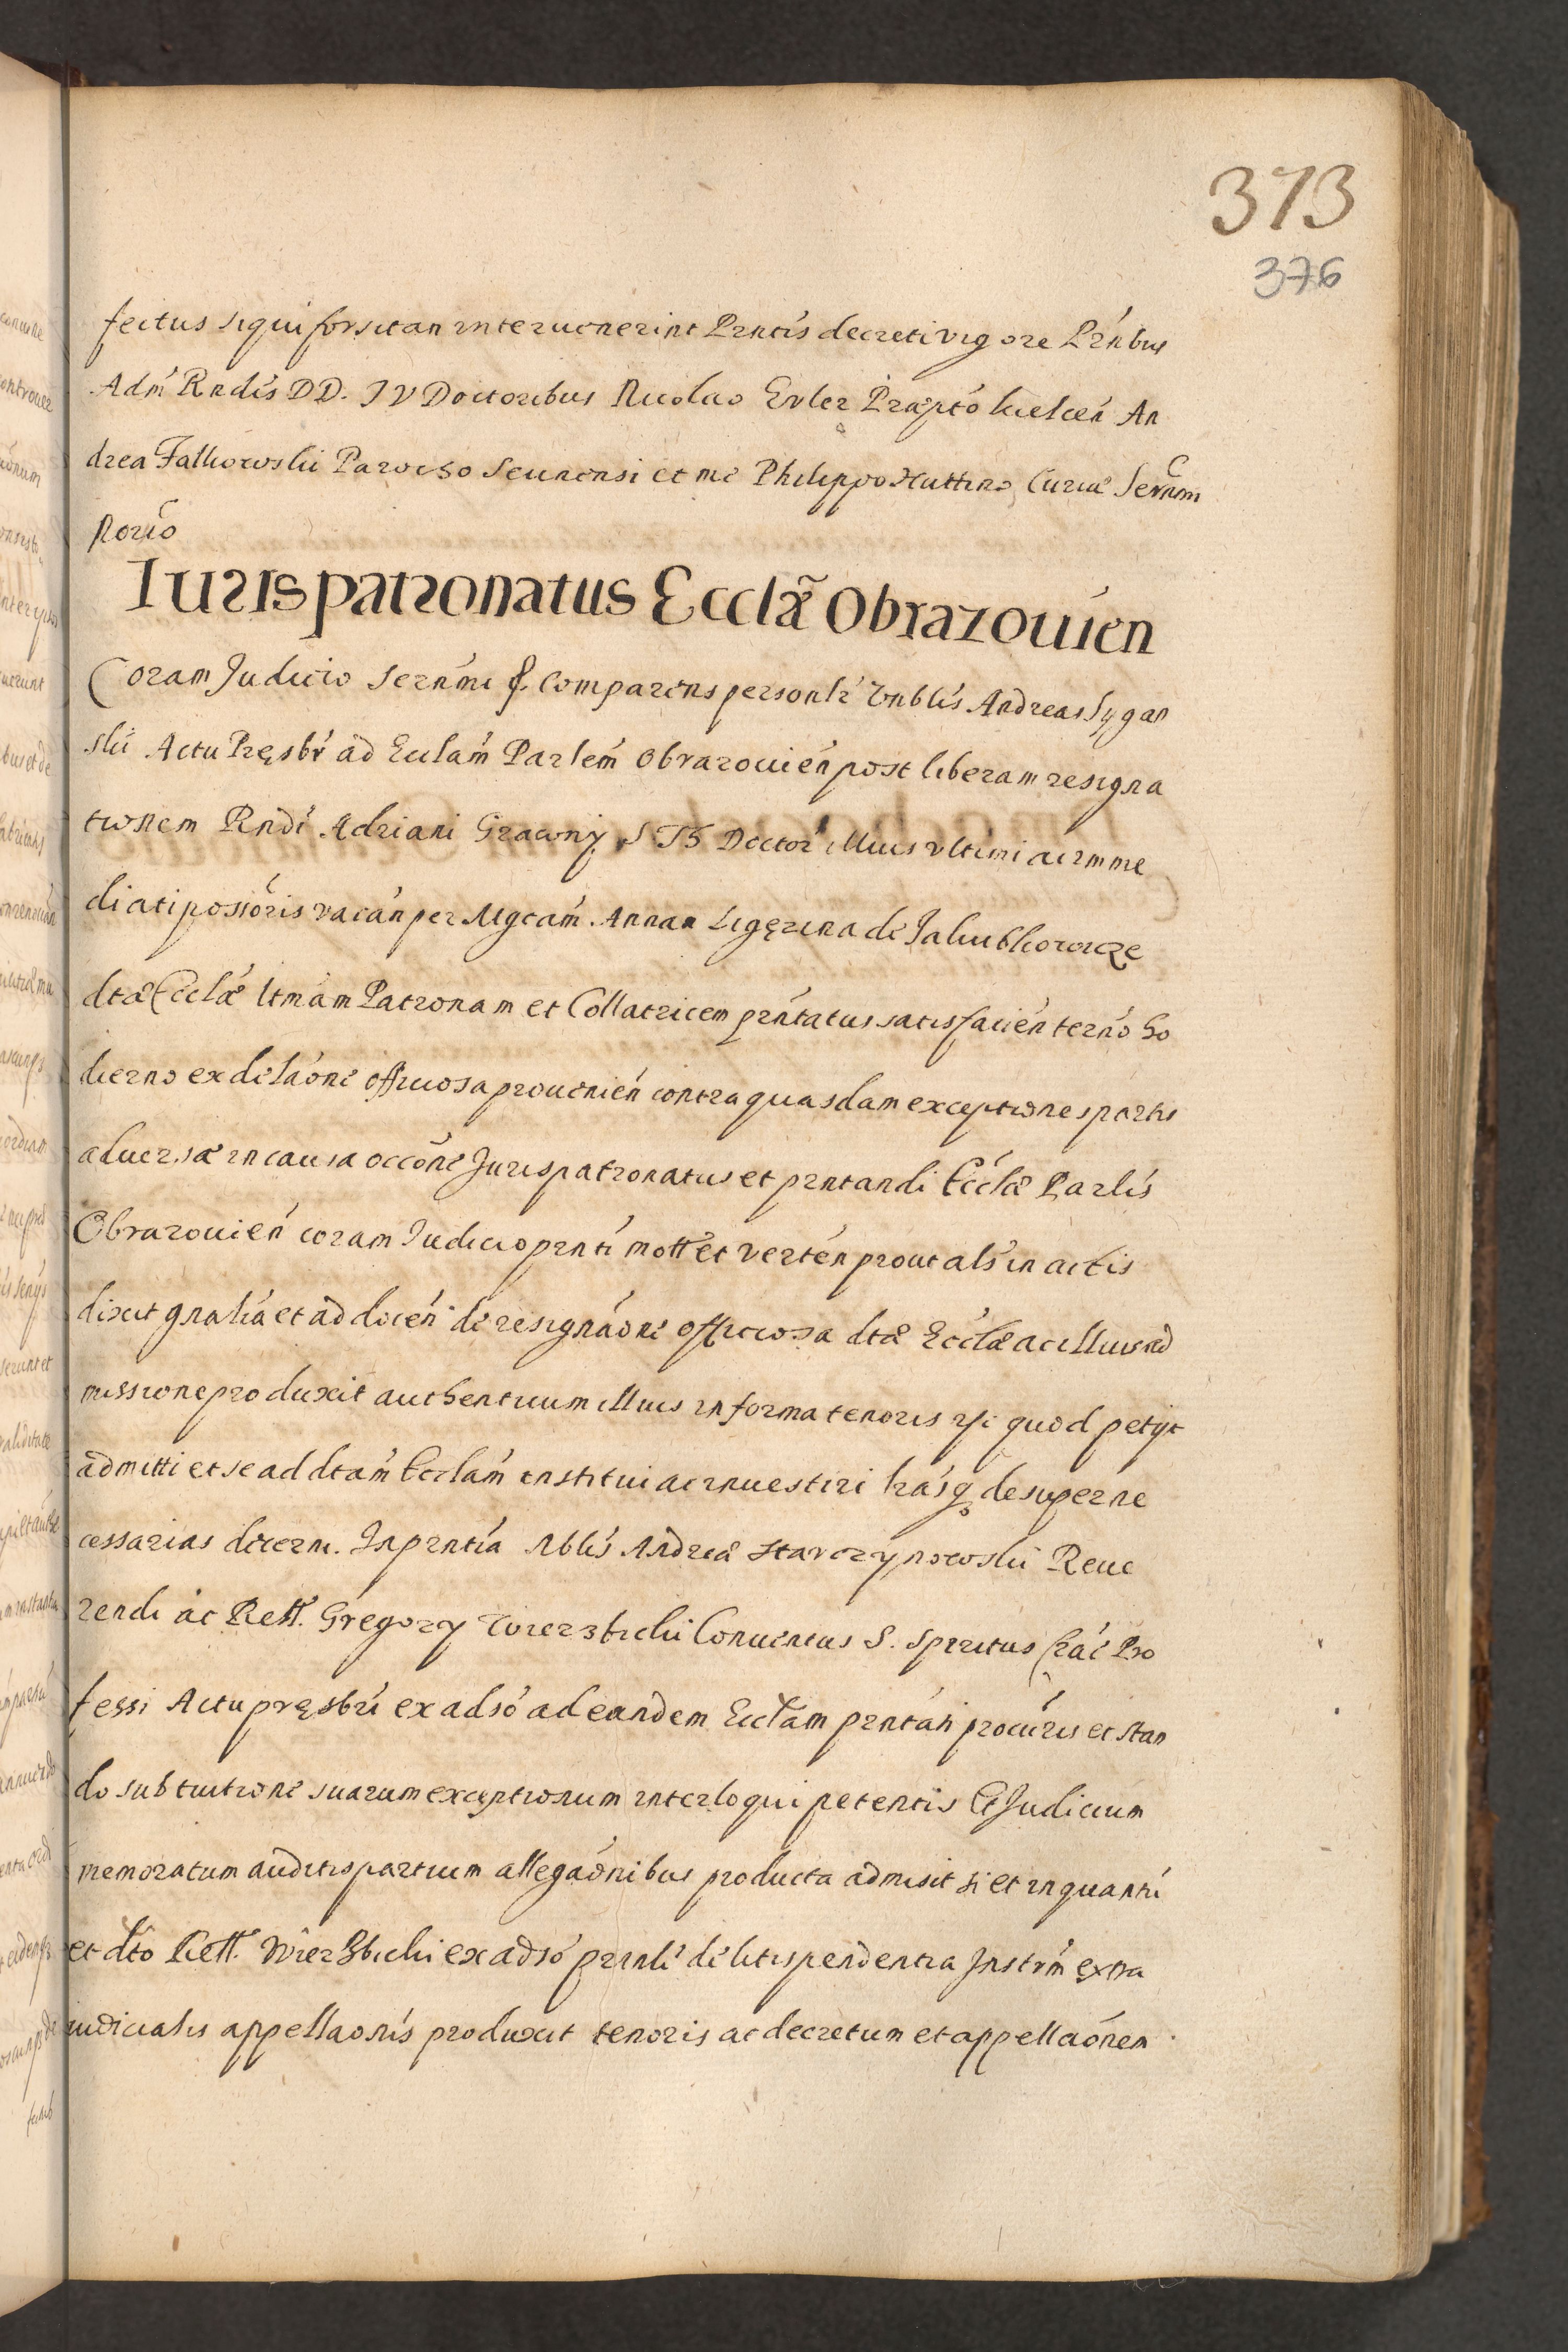 373
376
fectus siqui forsitan interuenerint Pntis decreti vigore Pntibus
Adm Rndis DD. IV Doctoribus Nicolao Erler Praepto kielcen An
drea Falkowski Parocho Seunensi et me Philippo Huttino Curiae Sernmi
Norio
Iuris patronatus Ecclae Obrazouien
Coram Judicio Sernmi &. Comparens personlr Vnblis Andreas Sygan
ski Actu Pręsbr ad Ecclam Parlem Obrazouien post liberam resigna
tionem Rndi Adriani Grawny S Th Doctor illius vltimi ac imme
diati possoris vacan per Mgcam Annam Ligęzina de Jakubkowice
dtae Ecclae ltmam Patronam et Collatricem prntatus satisfacien terno ho
dierno ex dilaone officiosa prouenien contra quasdam exceptiones partis
aduersae in causa occone Jurispatronatus et prntandi Ecclae Parlis
Obrazouien coram Judicio prnti mott et verten prout als in actis
dixit gnalia et ad docen de resignaone officiosa dtae Ecclae ac illius ad
missione produxit authenticum illius in forma tenoris &c quod petijt
admitti et se ad dtam Ecclam institui ac inuestiri lrasq desuper ne
cessarias decerni. In prntia Nblis Andreae Starczynowski Reue
rendi ac Rell. Gregory Wierzbicki Conuentus S. Spiritus Crac Pro
fessi Actu pręsbri ex adso ad eandem Ecclam prntati procuris et stan
do sub tuitione suarum exceptionum interloqui petentis Et Judicium
memoratum auditis partium allegaonibus producta admisit si et inquantu
et dto Rell. Wierzbicki ex adso prnti de litispendentia Instrm extra
iudicialis appellaonis produxit tenoris ac decretum et appellaonem